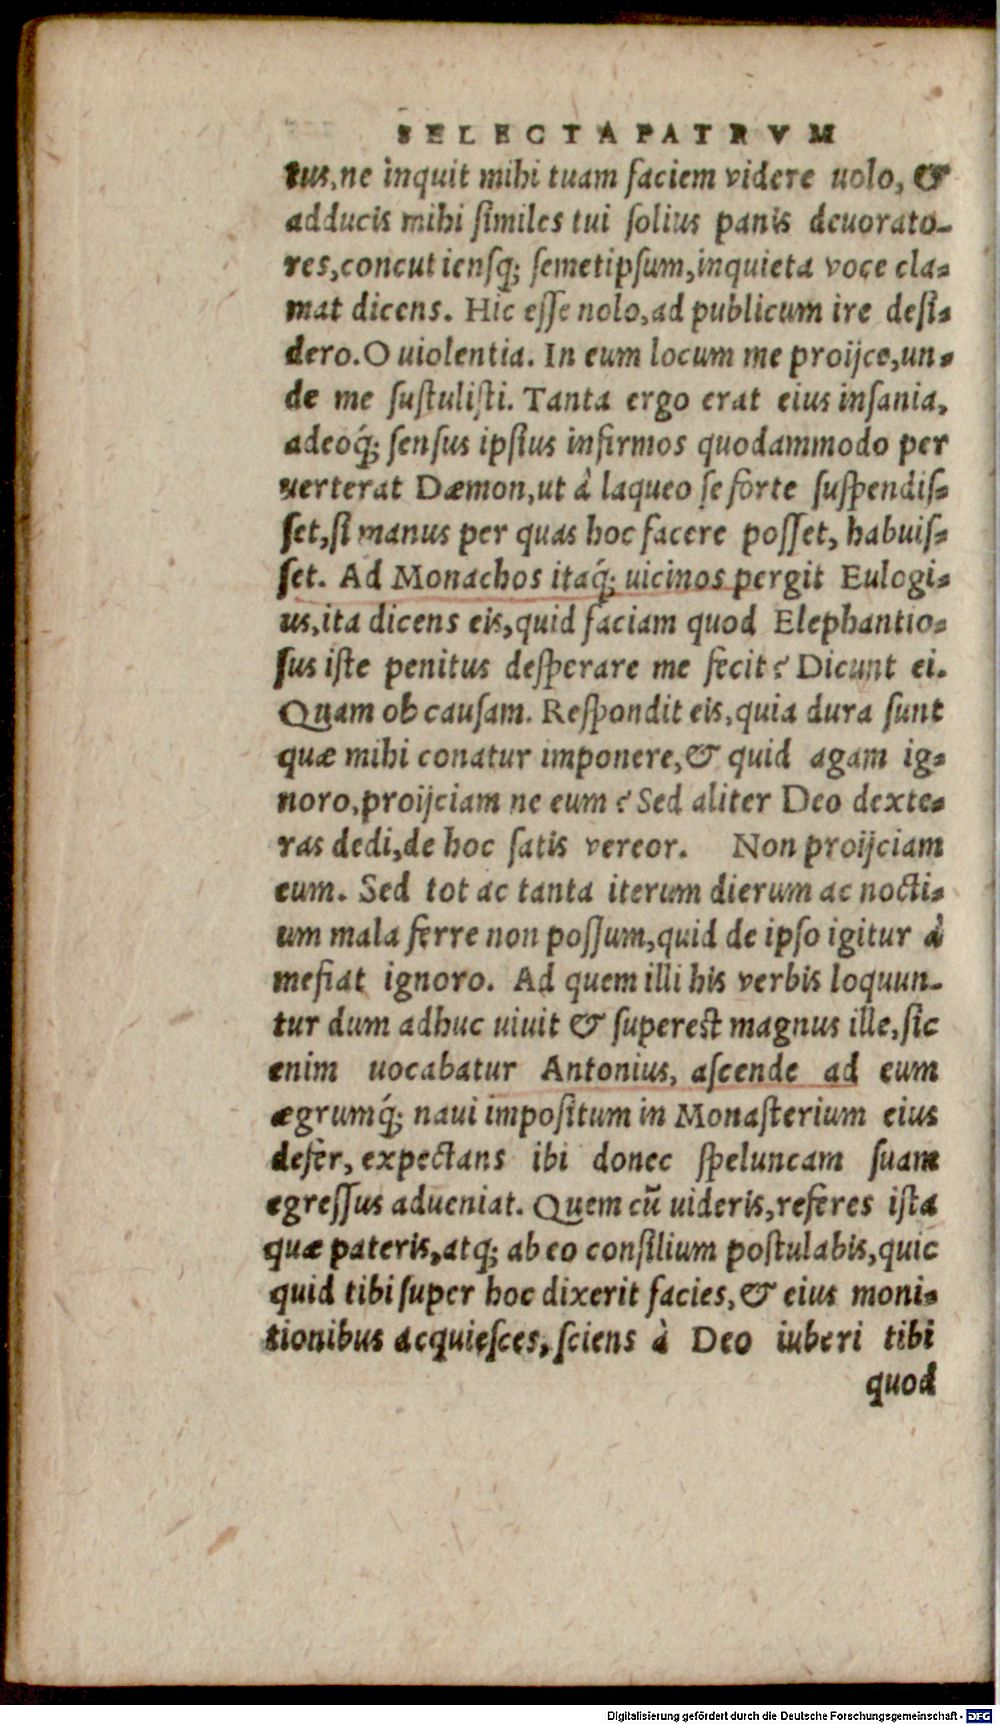 SELECTA PATRVM
tus, ne inquit mihi tuam faciem videre uolo, &
adducis mihi similes tui solius panis deuorato-
res, concutiensq́; semetipsum, inquieta voce cla-
mat dicens. Hic esse nolo, ad publicum ire desi-
dero. O uiolentia. In eum locum me proijce, un-
de me sustulisti. Tanta ergo erat eius insania,
adeoq́; sensus ipsius infirmos quodammodo per
uerterat Dæmon, ut à laqueo se forte suspendis-
set, si manus per quas hoc facere posset, habuis-
set. Ad Monachos itaq́; uicinos pergit Eulogi-
us, ita dicens eis, quid faciam quod Elephantio-
sus iste penitus desperare me fecit? Dicunt ei.
Quam ob causam. Respondit eis, quia dura sunt
quæ mihi conatur imponere, & quid agam ig-
noro, proijciam ne eum? Sed aliter Deo dexte-
ras dedi, de hoc satis vereor. Non proijciam
eum. Sed tot ac tanta iterum dierum ac nocti-
um mala ferre non possum, quid de ipso igitur à
me fiat ignoro. Ad quem illi his verbis loquun-
tur dum adhuc uiuit & superest magnus ille, sic
enim uocabatur Antonius, ascende ad eum
ægrumq́; naui impositum in Monasterium eius
defer, expectans ibi donec speluncam suam
egressus adueniat. Quem cũ uideris, referes ista
quæ pateris, atq; ab eo consilium postulabis, quic
quid tibi super hoc dixerit facies, & eius moni-
tionibus acquiesces, sciens à Deo iuberi tibi
quod
Digitalisierung gefördert durch die Deutsche Forschungsgemeinschaft - DFG